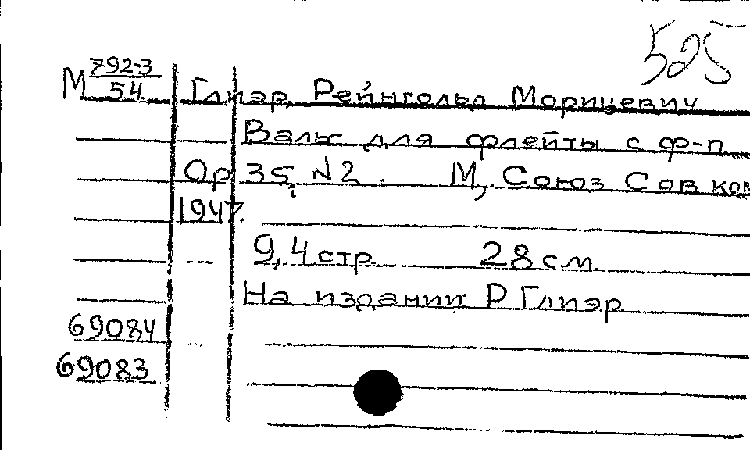 525
М 792-3/54
Глиэр, Рейнгольд Морицевич
Вальс для флейты с ф-п
Op 35, N2. М, Союз Сов ком
1947.
9, 4 стр 28 см
На издании Р Глиэр
69084
69083